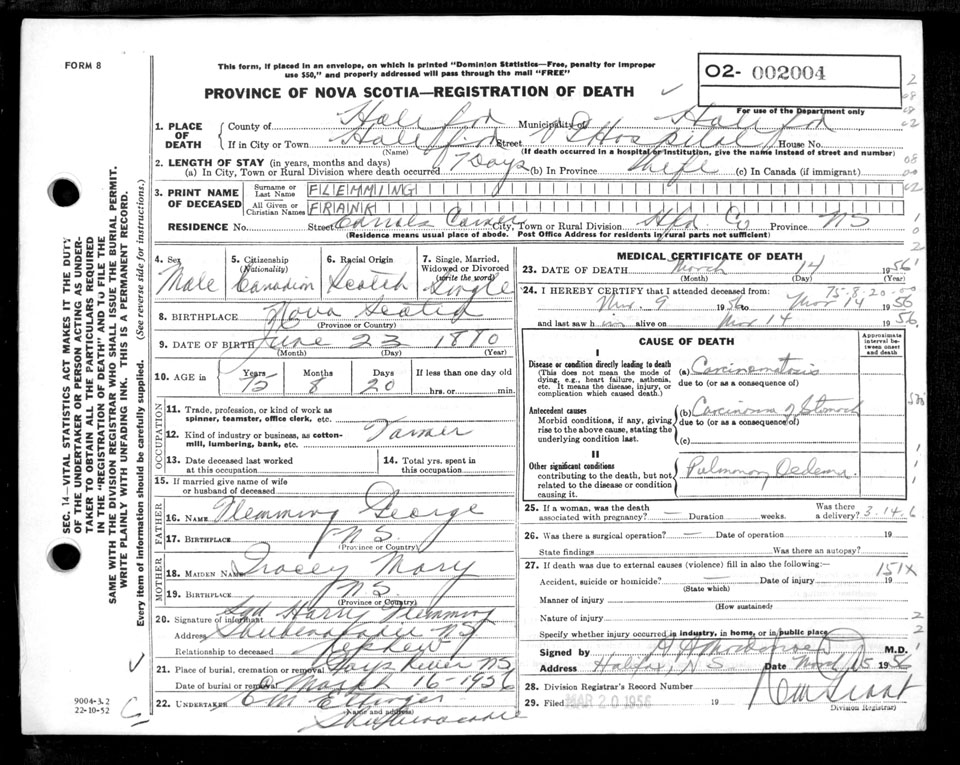 FORM 8
This form, if placed in an envelope, on which is printed "Dominion Statistics—Free, penalty for improper
use $50," and properly addressed will pass through the mail "FREE"
PROVINCE OF NOVA SCOTIA—REGISTRATION OF DEATH
O2- 002004
For use of the Department only
1. PLACE OF DEATH
County of Halifax Municipality of Halifax
If in City or Town Halifax Street V G Hospital House No.
(Name) (If death occurred in a hospital or institution, give the name instead of street and number)
2. LENGTH OF STAY (in years, months and days)
(a) In City, Town or Rural Division where death occurred 7 Days (b) In Province Life (c) In Canada (if immigrant)
3. PRINT NAME OF DECEASED
Surname or Last Name FLEMMING
All Given or Christian Names FRANK
RESIDENCE No. Street Corner City, Town or Rural Division Hfx Co Province NS
(Residence means usual place of abode. Post Office Address for residents in rural parts not sufficient)
4. Sex Male
5. Citizenship (Nationality) Canadian
6. Racial Origin Scotch
7. Single, Married, Widowed or Divorced (write the word) Single
8. BIRTHPLACE Nova Scotia
(Province or Country)
9. DATE OF BIRTH June 23 1880
(Month) (Day) (Year)
10. AGE in Years 75 Months 8 Days 20 If less than one day old
hrs. or min.
OCCUPATION
11. Trade, profession, or kind of work as spinner, teamster, office clerk, etc.
12. Kind of industry or business, as cotton-mill, lumbering, bank, etc. Farmer
13. Date deceased last worked at this occupation
14. Total yrs. spent in this occupation
15. If married give name of wife or husband of deceased
FATHER
16. NAME Flemming George
17. BIRTHPLACE NS
(Province or Country)
MOTHER
18. MAIDEN NAME Tracey Mary
19. BIRTHPLACE NS
(Province or Country)
20. Signature of informant Sgd Harry Flemming
Address Shubenacadie NS
Relationship to deceased Nephew
21. Place of burial, cremation or removal Gays River NS
Date of burial or removal March 16-1956
22. UNDERTAKER
(Name and address) Shubenacadie
MEDICAL CERTIFICATE OF DEATH
23. DATE OF DEATH March 14 1956
(Month) (Day) (Year)
75-8-20-00
24. I HEREBY CERTIFY that I attended deceased from:
Mar. 9 1956 to Mar 14 1956
and last saw him alive on Mar 14 1956
CAUSE OF DEATH
Approximate interval between onset and death
I
Disease or condition directly leading to death
(This does not mean the mode of dying, e.g., heart failure, asthenia, etc. It means the disease, injury, or complication which caused death.)
(a) Carcinomatosis
due to (or as a consequence of)
Antecedent causes
Morbid conditions, if any, giving rise to the above cause, stating the underlying condition last.
(b) Carcinoma of Stomach
due to (or as a consequence of)
(c)
II
Other significant conditions
contributing to the death, but not related to the disease or condition causing it.
Pulmonary Oedema
25. If a woman, was the death associated with pregnancy? — Duration weeks. Was there a delivery? 3.14.6
26. Was there a surgical operation? — Date of operation 19
State findings Was there an autopsy?
27. If death was due to external causes (violence) fill in also the following:—
151X
Accident, suicide or homicide? — Date of injury 19
(State which)
Manner of injury
(How sustained)
Nature of injury
Specify whether injury occurred in industry, in home, or in public place
Signed by M.D.
Address Halifax, NS Date March 15 1956
28. Division Registrar's Record Number
29. Filed MAR 20 1956 19
Division Registrar)
SEC. 14—VITAL STATISTICS ACT MAKES IT THE DUTY
OF THE UNDERTAKER OR PERSON ACTING AS UNDER-
TAKER TO OBTAIN ALL THE PARTICULARS REQUIRED
IN THE "REGISTRATION OF DEATH" AND TO FILE THE
SAME WITH THE DIVISION REGISTRAR WHO SHALL ISSUE THE BURIAL PERMIT.
WRITE PLAINLY WITH UNFADING INK. THIS IS A PERMANENT RECORD.
Every item of information should be carefully supplied. (See reverse side for instructions.)
9004-3.2
22-10-52